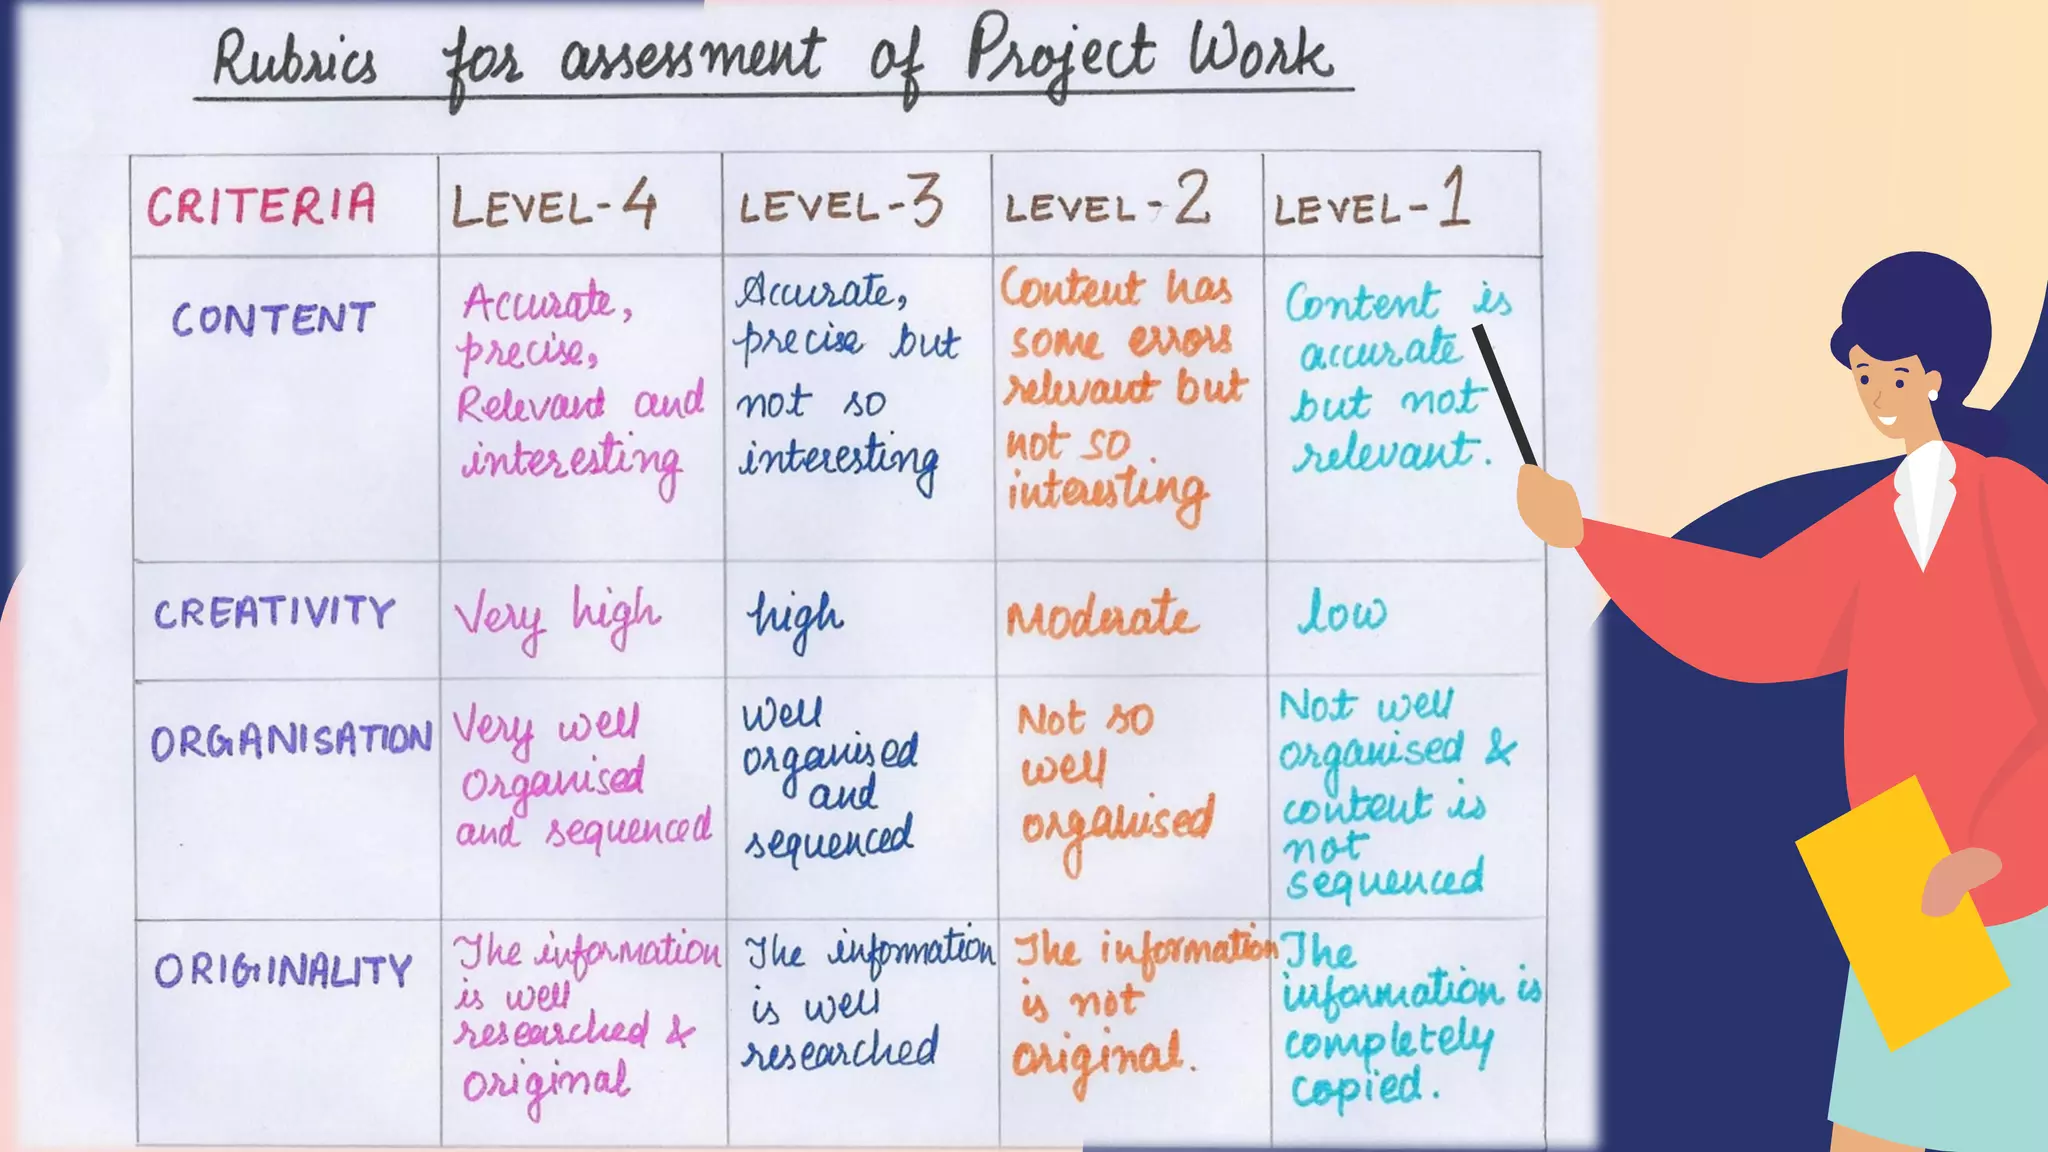 Rubrics for assessment of Project Work
CRITERIA
LEVEL-4
LEVEL-3
LEVEL-2
LEVEL-1
CONTENT
Accurate,
precise,
Relevant and
interesting
Accurate,
precise but
not so
interesting
Content has
some errors
relevant but
not so
interesting
Content is
accurate
but not
relevant.
CREATIVITY
Very high
high
Moderate
low
ORGANISATION
Very well
Organised
and sequenced
Well
organised
and
sequenced
Not so
well
organised
Not well
organised &
content is
not
sequenced
ORIGINALITY
The information
is well
researched &
original
The information
is well
researched
The information
is not
original.
The
information is
completely
copied.